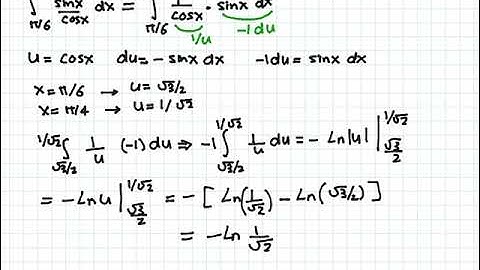 ∫_{π/6} sinx/cosx dx = ∫_{π/6} 1/cosx · sinx dx
1/u -1du
u = cosx du = -sinx dx -1du = sinx dx
x = π/6 → u = √3/2
x = π/4 → u = 1/√2
∫_{√3/2}^{1/√2} 1/u (-1) du ⇒ -1 ∫_{√3/2}^{1/√2} 1/u du = -Ln|u| |_{√3/2}^{1/√2}
= -Ln u |_{√3/2}^{1/√2} = -[Ln(1/√2) - Ln(√3/2)]
= -Ln 1/√2